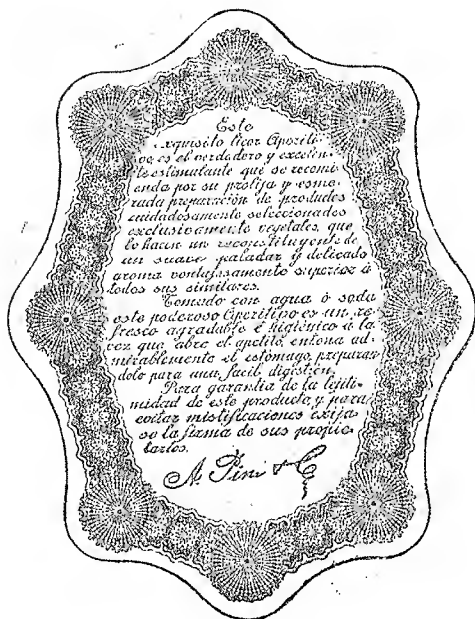 Este
exquisito licor Aperiti-
vo es el verdadero y excelen-
te estimulante que se recomi-
enda por su prolija y esme-
rada preparación de productos
cuidadosamente seleccionados
exclusivamente vegetales, que
lo hacen un reconstituyente de
un suave paladar y delicado
aroma ventajosamente superior á
todos sus similares.
Tomado con agua ó soda
este poderoso Aperitivo es un re-
fresco agradable é higiénico á la
vez que abre el apetito, entona ad-
mirablemente el estómago preparan-
dolo para una facil digestión.
Para garantia de la lejiti-
midad de este producto y para
evitar mistificaciones exija-
se la firma de sus propie-
tarios.
A. Pini & C.